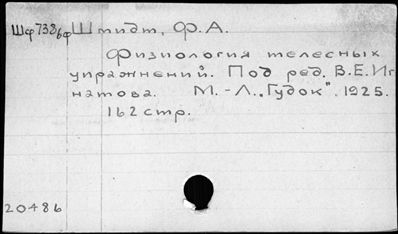 Шф738бф Шмидт, Ф.А.
Физиология телесных
упражнений. Под ред. В.Е.Иг
натова. М.-Л. „Гудок". 1925.
162 стр.
20486